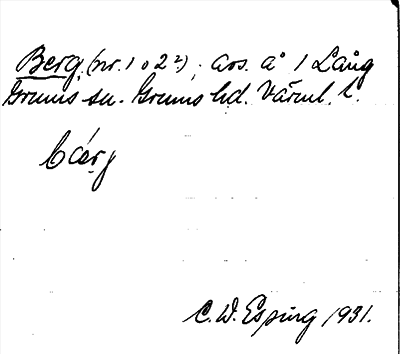 Berg (nr. 1 o 2²), avs. å 1 Lång
Grums sn. Grums hd. Värml. l.
bærj
C. W. Esping 1931.